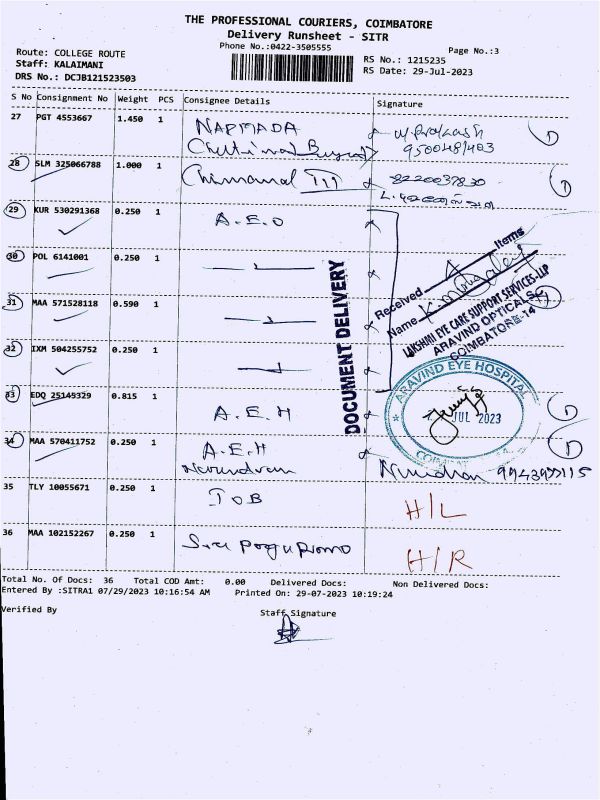 THE PROFESSIONAL COURIERS, COIMBATORE
Delivery Runsheet - SITR
Phone No.:0422-3505555
Page No.:3
Route: COLLEGE ROUTE
Staff: KALAIMANI
DRS No.: DCJB121523503
RS No.: 1215235
RS Date: 29-Jul-2023
S No Consignment No Weight PCS Consignee Details Signature
27 PGT 4553667 1.450 1 NARMADA
9500481403
28 SLM 325066788 1.000 1 8220037830
29 KUR 530291368 0.250 1 A.E.O
30 POL 6141001 0.250 1
31 MAA 571528118 0.590 1
32 IXM 504255752 0.250 1
33 EDQ 25145329 0.815 1 A.E.H
34 MAA 570411752 0.250 1 A.E.H
35 TLY 10055671 0.250 1 IOB H/L
36 MAA 102152267 0.250 1 H/R
DOCUMENT DELIVERY
Received Items
Name
LAKSHMI EYE CARE SUPPORT SERVICES-LLP
ARAVIND OPTICALS
COIMBATORE-14
ARAVIND EYE HOSPITAL
JUL 2023
Total No. Of Docs: 36 Total COD Amt: 0.00 Delivered Docs: Non Delivered Docs:
Entered By :SITRA1 07/29/2023 10:16:54 AM Printed On: 29-07-2023 10:19:24
Verified By Staff Signature